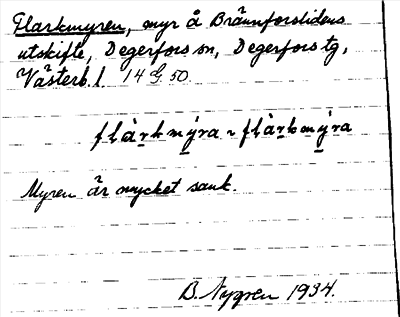 Flarkmyren, myr å Brännforslidens
utskifte, Degerfors sn, Degerfors tg,
Västerb. l. 14 G 50
flàrkmýra ~ flàrkmýra
Myren är mycket sank.
B. Nygren 1934.